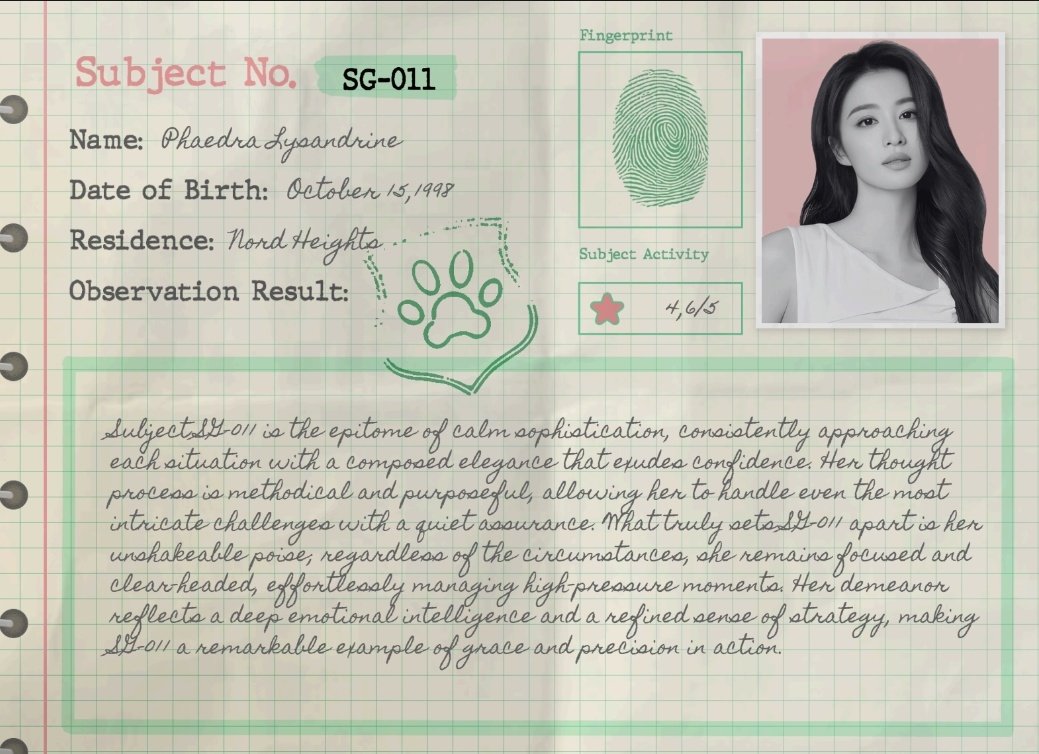 Subject No. SG-011
Name: Phaedra Lysandrine
Date of Birth: October 15, 1998
Residence: Nord Heights
Observation Result:
Fingerprint
Subject Activity
4,6/5
Subject SG-011 is the epitome of calm sophistication, consistently approaching
each situation with a composed elegance that exudes confidence. Her thought
process is methodical and purposeful, allowing her to handle even the most
intricate challenges with a quiet assurance. What truly sets SG-011 apart is her
unshakeable poise; regardless of the circumstances, she remains focused and
clear-headed, effortlessly managing high-pressure moments. Her demeanor
reflects a deep emotional intelligence and a refined sense of strategy, making
SG-011 a remarkable example of grace and precision in action.